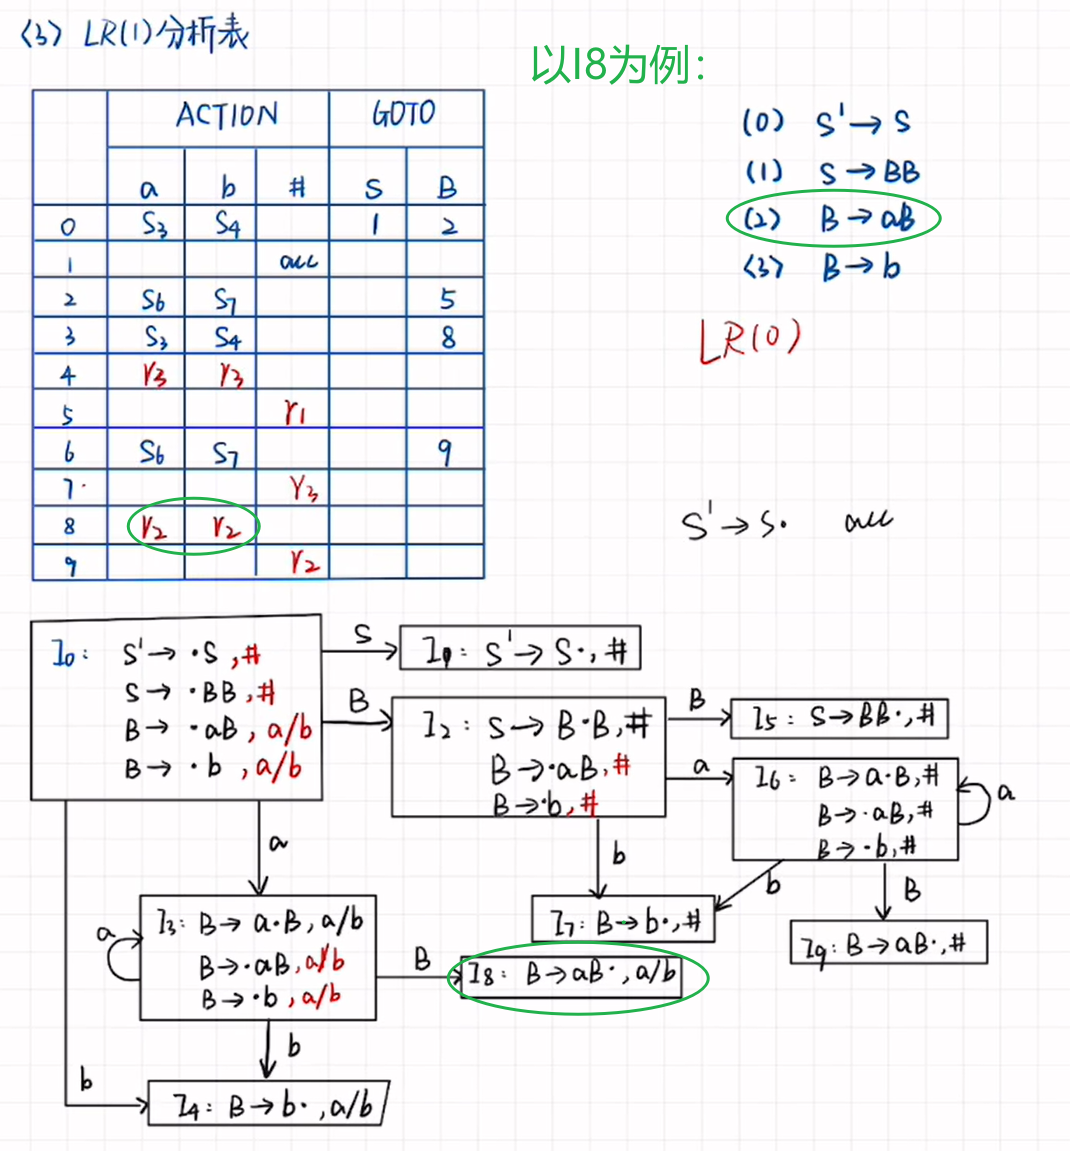 (3) LR(1)分析表
以I8为例：
ACTION GOTO
a b # S B
0 S3 S4 1 2
1 acc
2 S6 S7 5
3 S3 S4 8
4 r3 r3
5 r1
6 S6 S7 9
7 r3
8 r2 r2
9 r2
(0) S'→S
(1) S→BB
(2) B→aB
(3) B→b
LR(0)
S'→S· acc
I0: S'→·S,#
S→·BB,#
B→·aB,a/b
B→·b,a/b
S
I1: S'→S·,#
B
I2: S→B·B,#
B→·aB,#
B→·b,#
B
I5: S→BB·,#
a
I6: B→a·B,#
B→·aB,#
B→·b,#
a
a
b
b
B
I3: B→a·B,a/b
B→·aB,a/b
B→·b,a/b
a
I7: B→b·,#
I9: B→aB·,#
B
I8: B→aB·,a/b
b
b
I4: B→b·,a/b